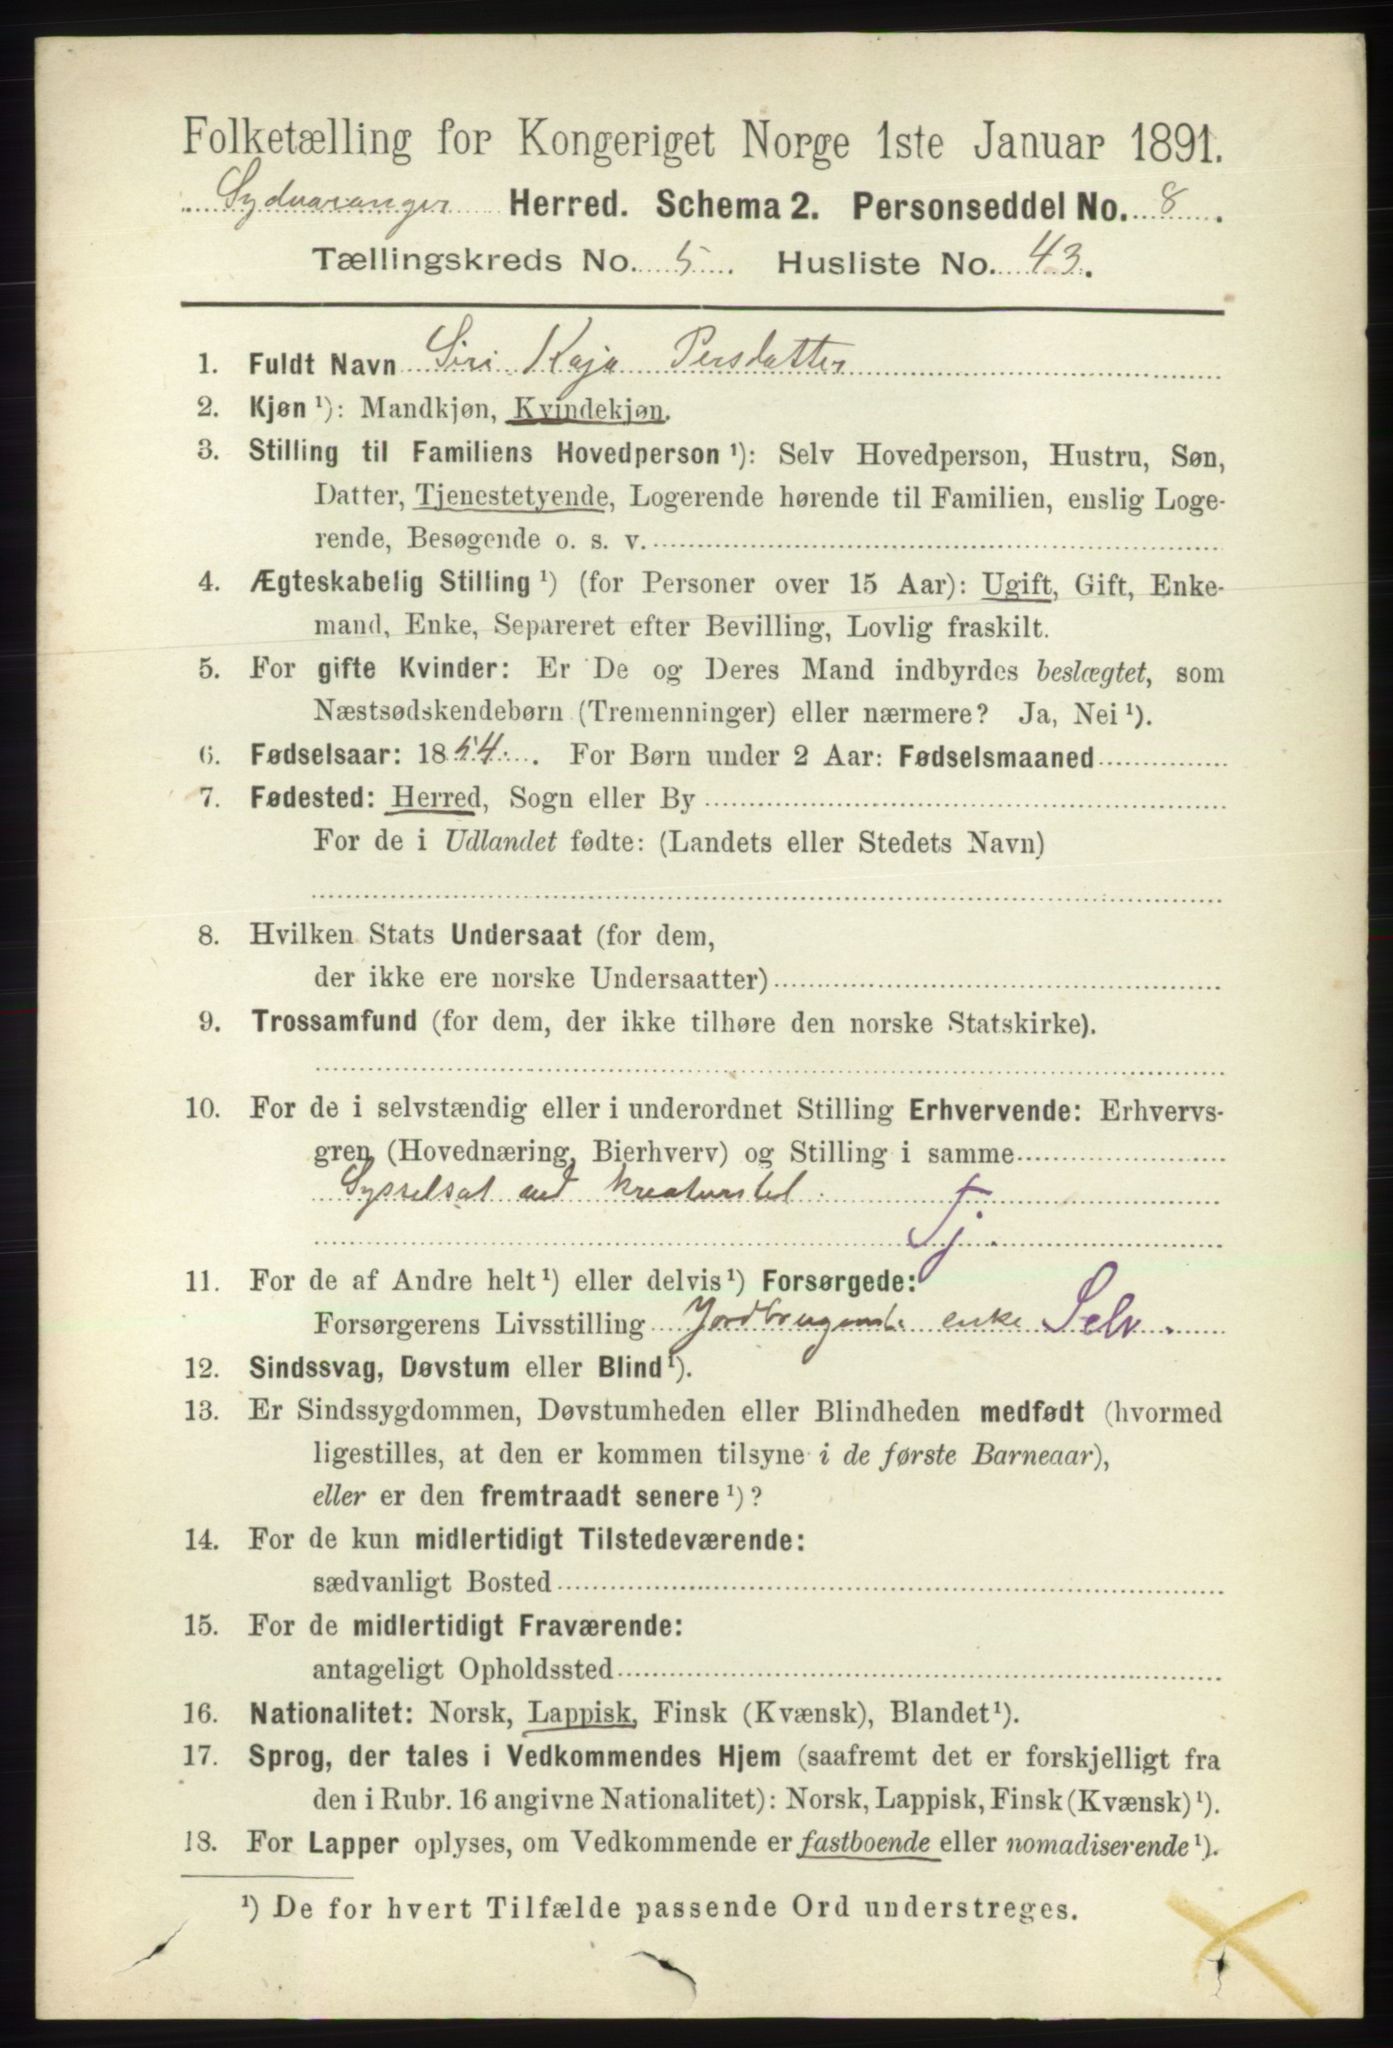 Folketælling for Kongeriget Norge 1ste Januar 1891.
Sydvaranger Herred. Schema 2. Personseddel No. 8.
Tællingskreds No. 5. Husliste No. 43.
1. Fuldt Navn Siri Kaja Persdatter
2. Kjøn ¹): Mandkjøn, Kvindekjøn.
3. Stilling til Familiens Hovedperson ¹): Selv Hovedperson, Hustru, Søn,
Datter, Tjenestetyende, Logerende hørende til Familien, enslig Loge-
rende, Besøgende o. s. v.
4. Ægteskabelig Stilling ¹) (for Personer over 15 Aar): Ugift, Gift, Enke-
mand, Enke, Separeret efter Bevilling, Lovlig fraskilt.
5. For gifte Kvinder: Er De og Deres Mand indbyrdes beslægtet, som
Næstsødskendebørn (Tremenninger) eller nærmere? Ja, Nei ¹).
6. Fødselsaar: 1854. For Børn under 2 Aar: Fødselsmaaned
7. Fødested: Herred, Sogn eller By
For de i Udlandet fødte: (Landets eller Stedets Navn)
8. Hvilken Stats Undersaat (for dem,
der ikke ere norske Undersaatter)
9. Trossamfund (for dem, der ikke tilhøre den norske Statskirke).
10. For de i selvstændig eller i underordnet Stilling Erhvervende: Erhvervs-
gren (Hovednæring, Bierhverv) og Stilling i samme
Sysselsat med kreaturstel.
Tj.
11. For de af Andre helt ¹) eller delvis ¹) Forsørgede:
Forsørgerens Livsstilling enke Selv.
12. Sindssvag, Døvstum eller Blind ¹).
13. Er Sindssygdommen, Døvstumheden eller Blindheden medfødt (hvormed
ligestilles, at den er kommen tilsyne i de første Barneaar),
eller er den fremtraadt senere ¹)?
14. For de kun midlertidigt Tilstedeværende:
sædvanligt Bosted
15. For de midlertidigt Fraværende:
antageligt Opholdssted
16. Nationalitet: Norsk, Lappisk, Finsk (Kvænsk), Blandet ¹).
17. Sprog, der tales i Vedkommendes Hjem (saafremt det er forskjelligt fra
den i Rubr. 16 angivne Nationalitet): Norsk, Lappisk, Finsk (Kvænsk) ¹).
18. For Lapper oplyses, om Vedkommende er fastboende eller nomadiserende ¹).
¹) De for hvert Tilfælde passende Ord understreges.